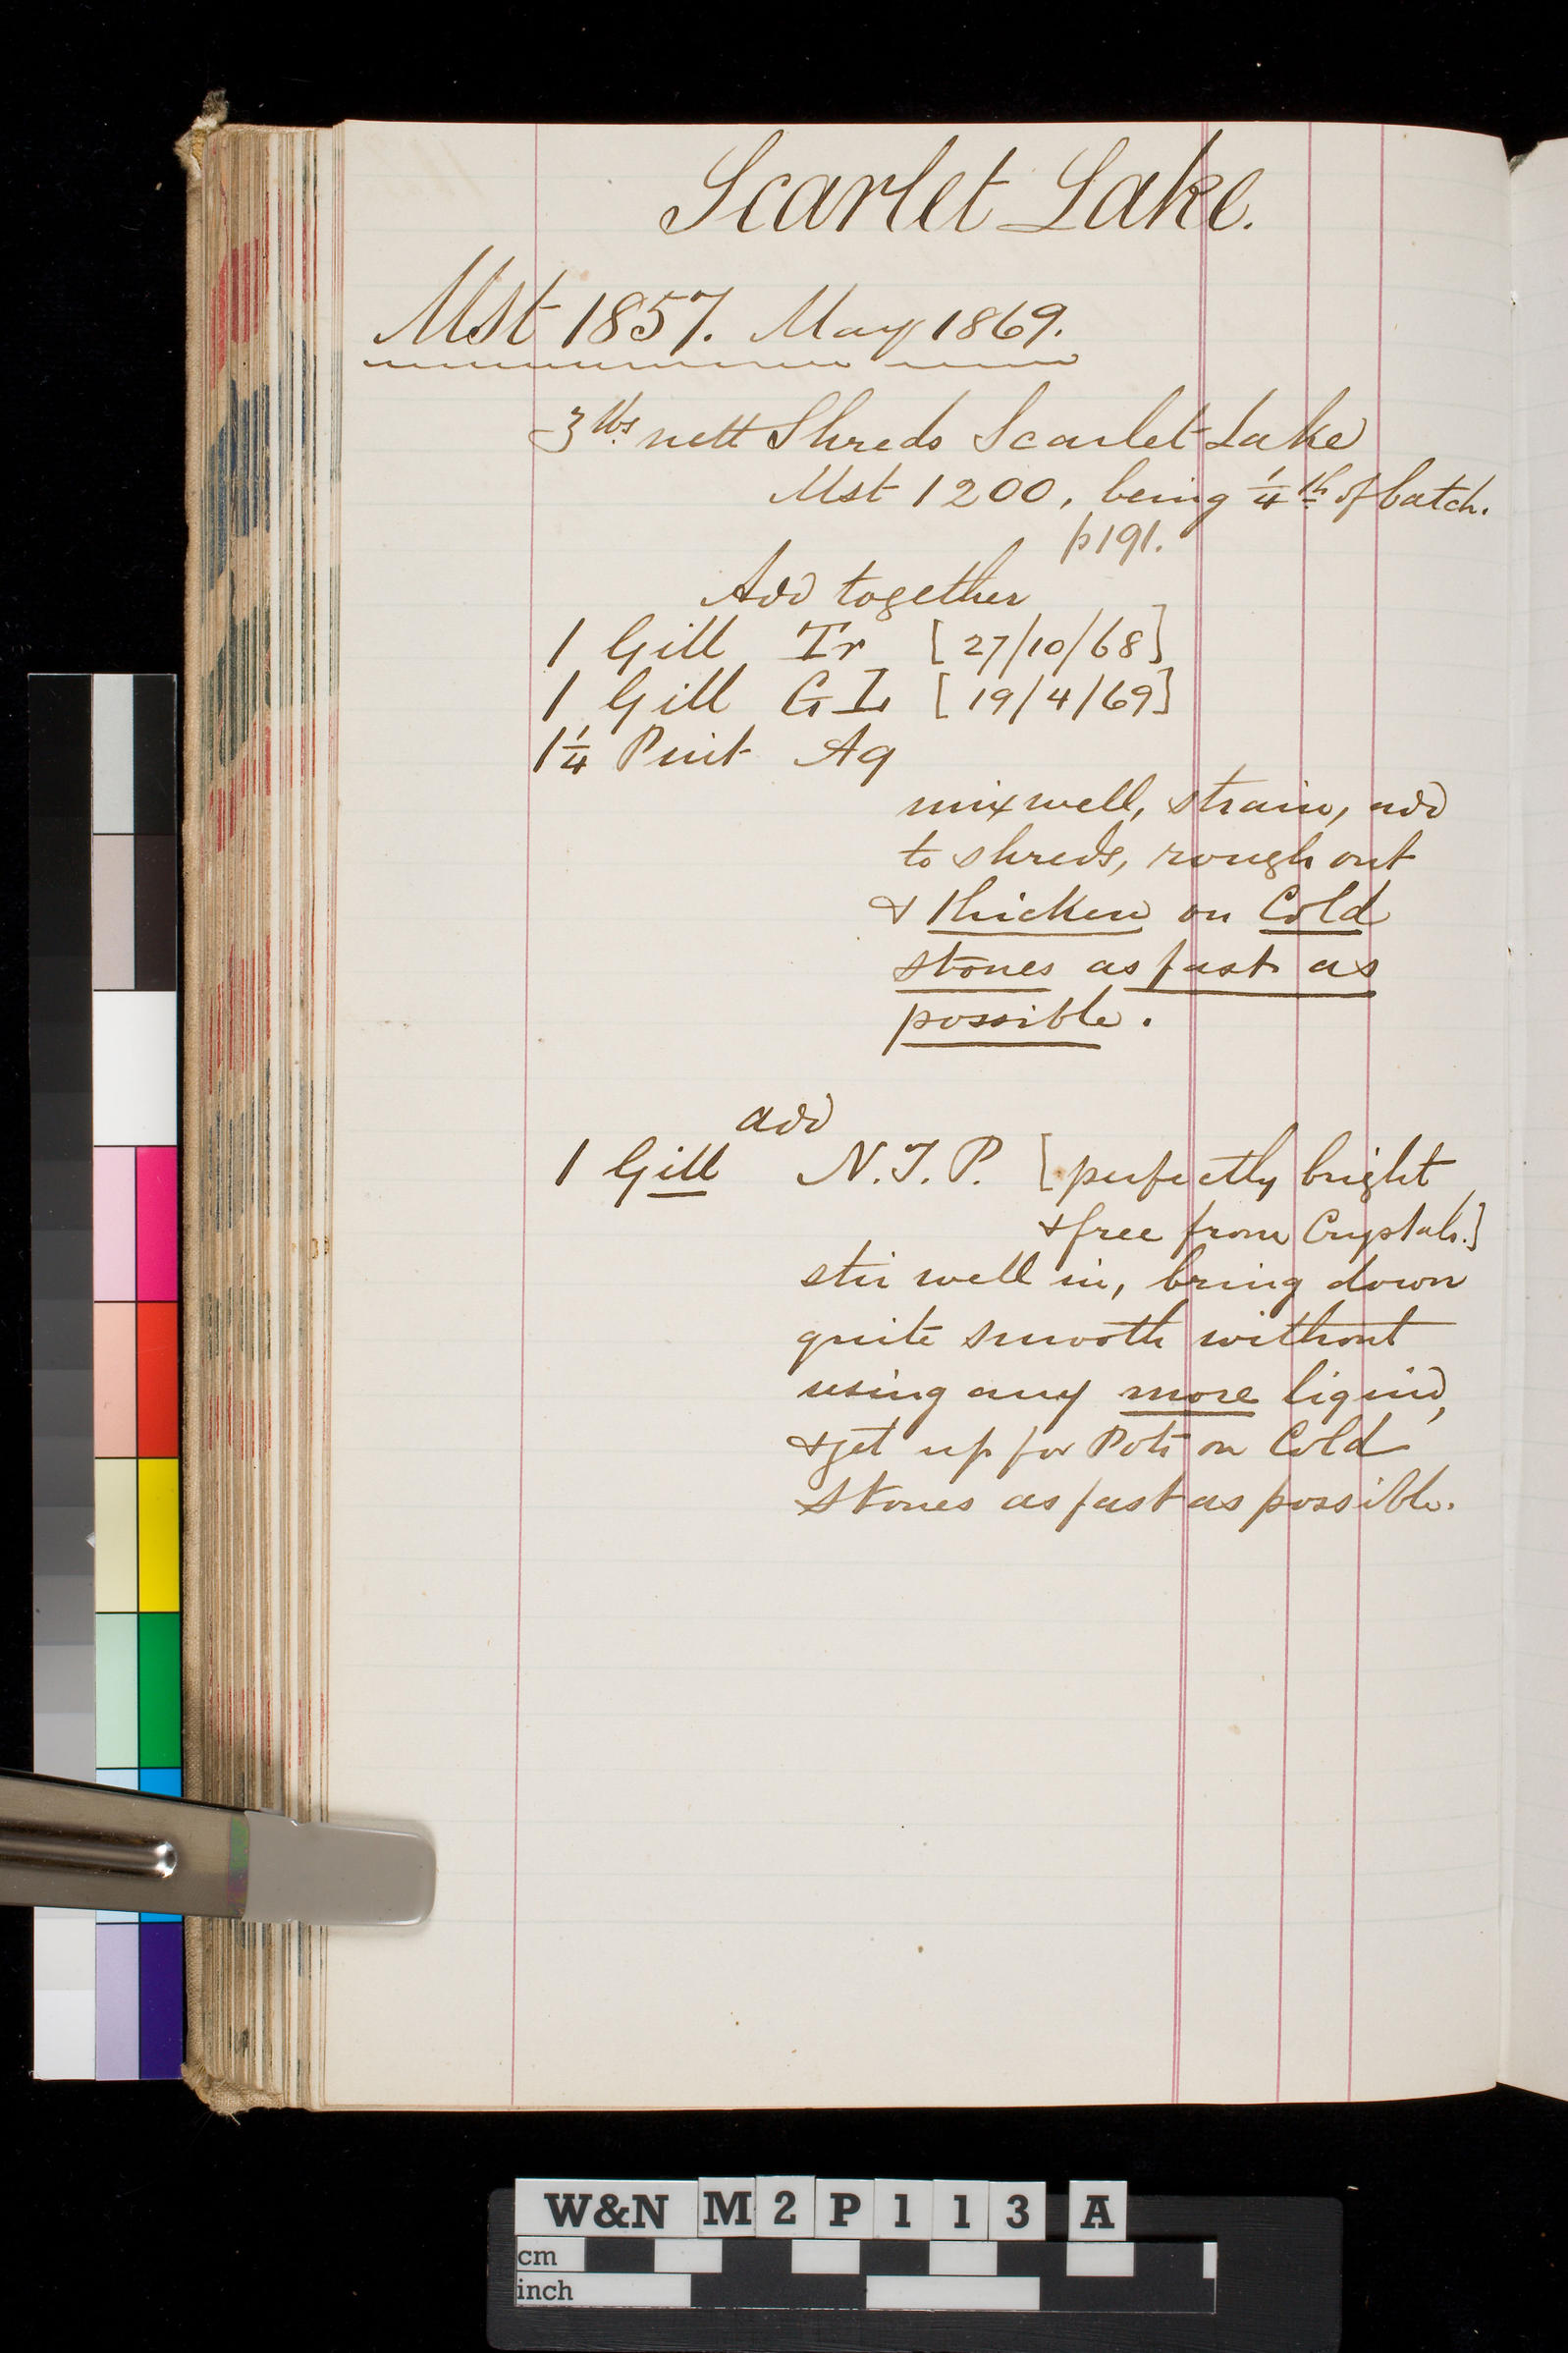 Scarlet Lake.
Mst 1857. May 1869.
3 lbs nett Shreds Scarlet Lake
Mst 1200, being 1/4th of batch.
p191.
Add together
1 Gill Tr [27/10/68]
1 Gill GL [19/4/69]
1 1/4 Pint Aq
mix well, strain, add
to shreds, rough out
& thicken on Cold
stones as fast as
possible.
add
1 Gill N.T.P. [perfectly bright
& free from Crystals.]
stir well in, bring down
quite smooth without
using any more liquid,
& get up for Pots on Cold
Stones as fast as possible.
W&N M2P113 A
cm
inch